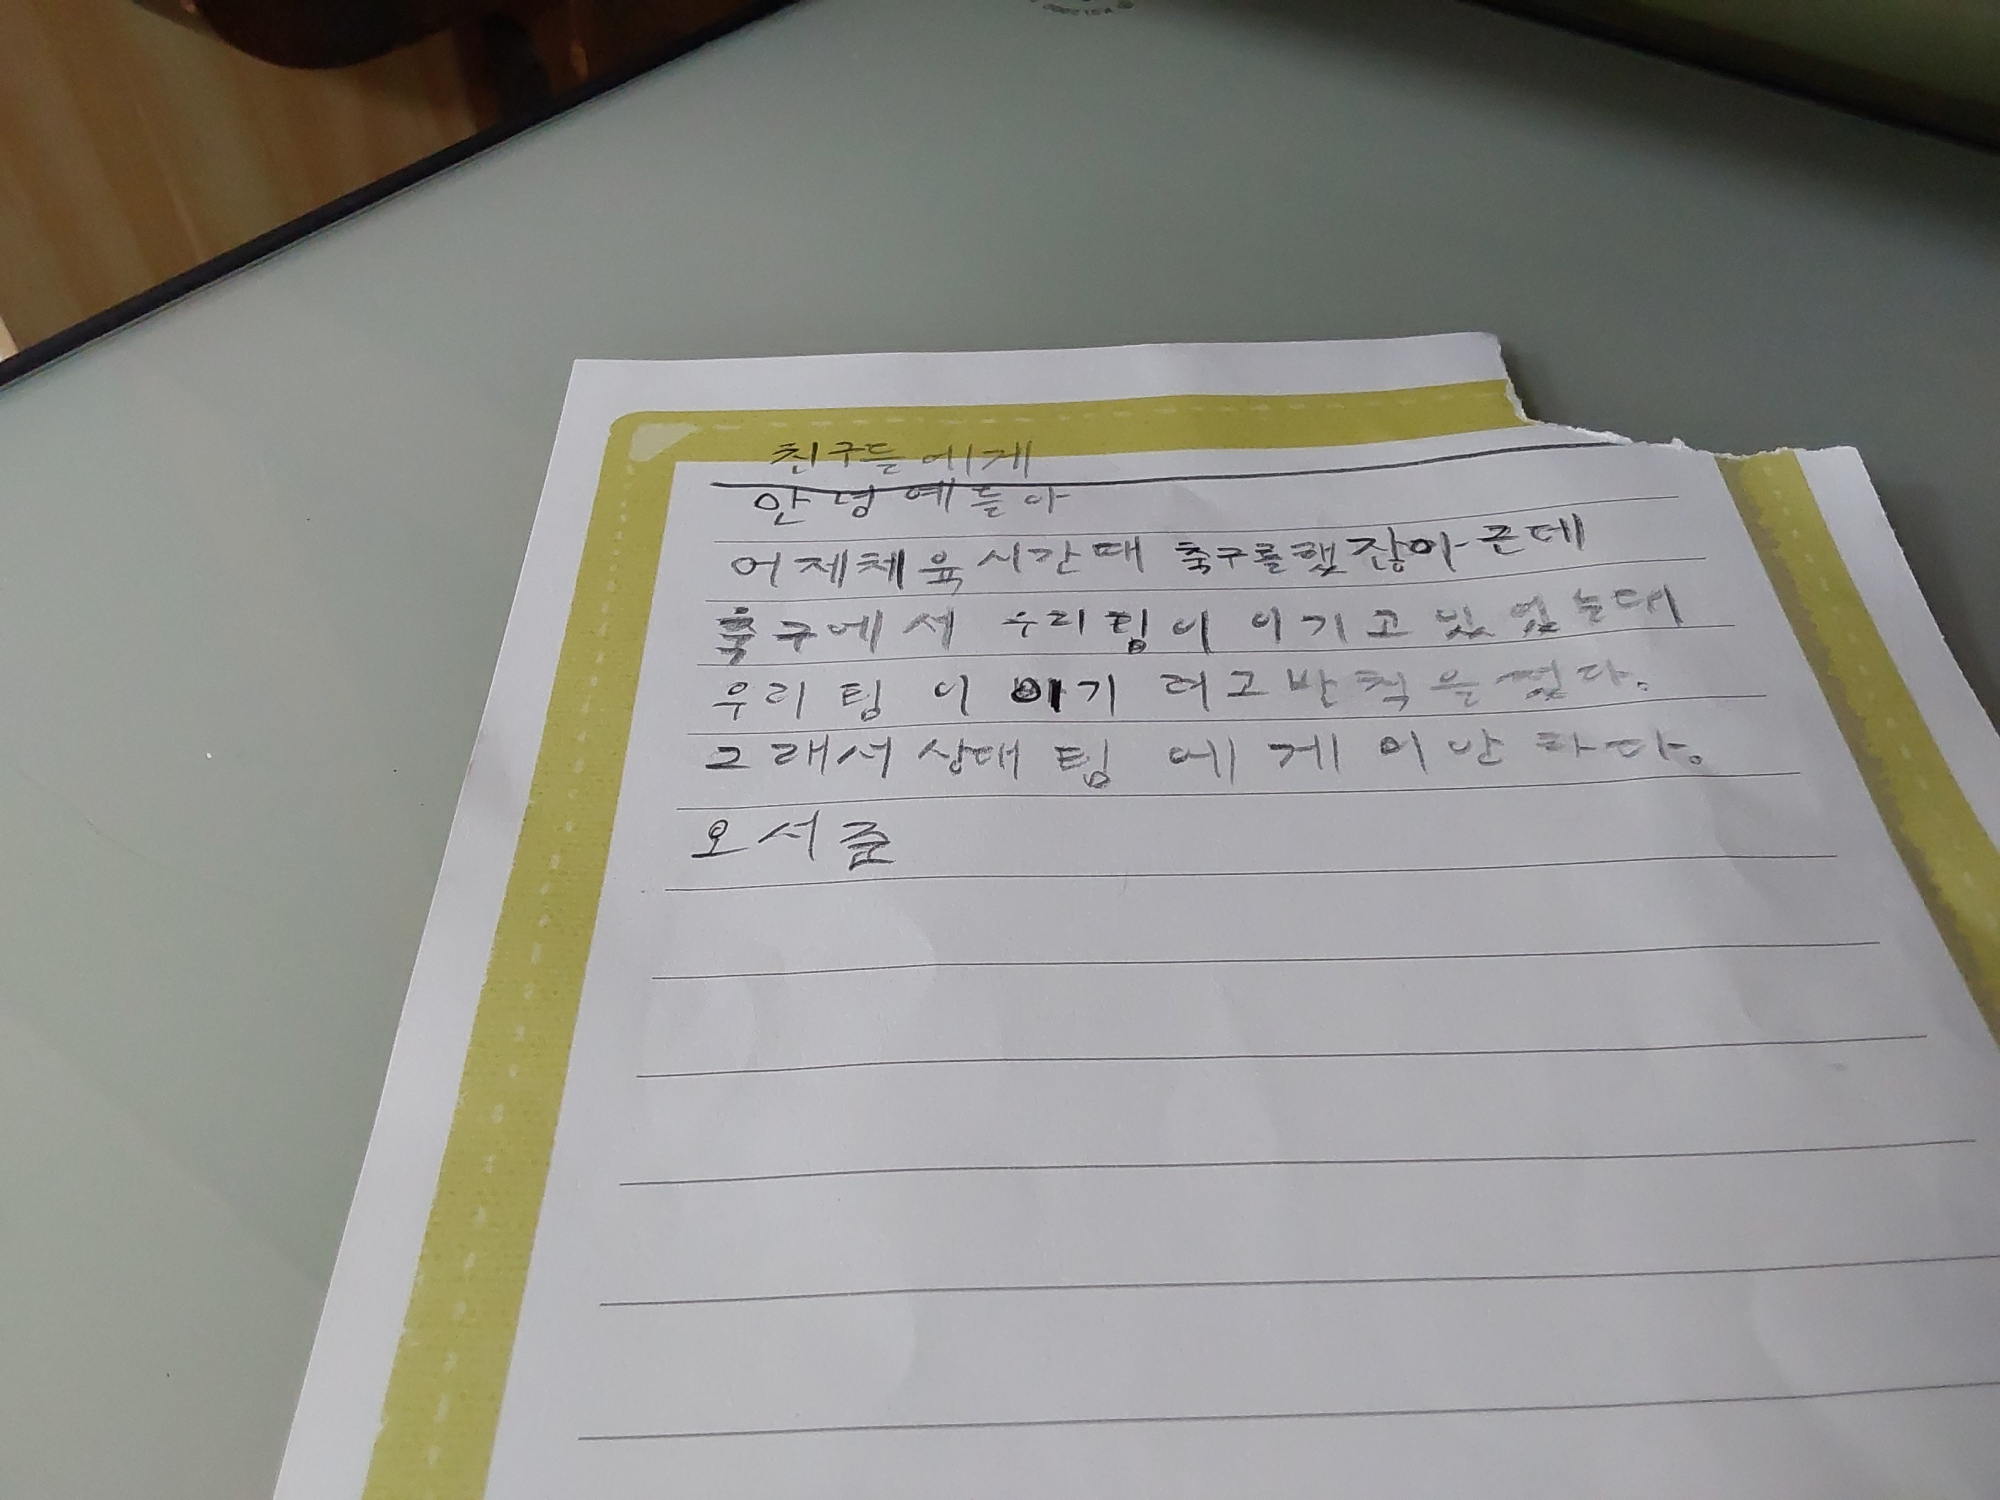 친구들에게
안녕 예들아
어제체육시간때 축구를했잖아 근데
축구에서 우리팀이 이기고 있었는데
우리팀이 이기려고반칙을썼다.
그래서 상대팀에게 미안하다.
오서준